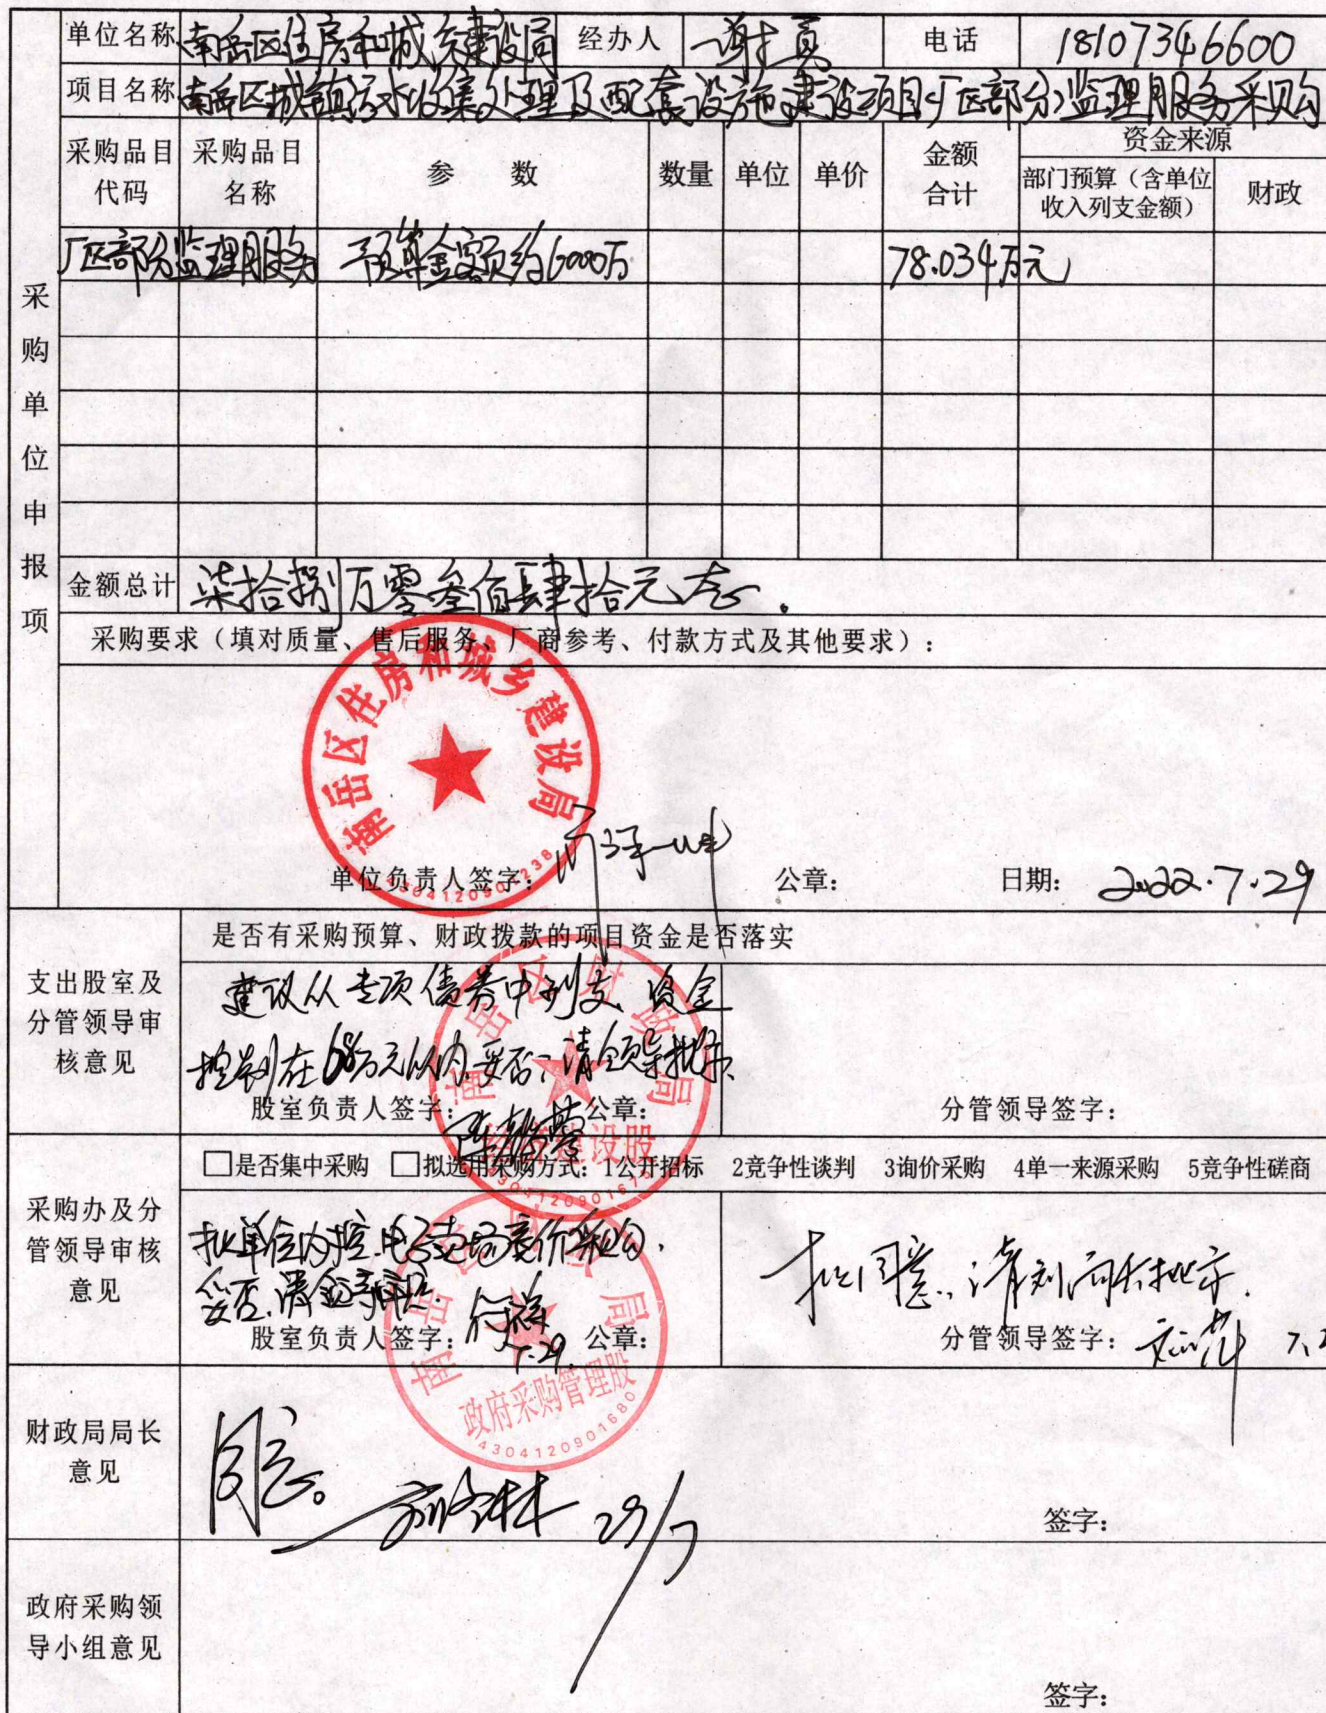 单位名称 南岳区住房和城乡建设局 经办人 谢真 电话 18107346600
项目名称 南岳区城镇污水收集处理及配套设施建设项目厂区部分监理服务采购
采购品目代码 采购品目名称 参 数 数量 单位 单价 金额合计 资金来源
部门预算（含单位收入列支金额） 财政
厂区部分监理服务 预算金额约6000万 78.034万元
采购单位申报项
金额总计 柒拾捌万零叁佰肆拾元整。
采购要求（填对质量、售后服务、厂商参考、付款方式及其他要求）：
南岳区住房和城乡建设局
4304120901238
单位负责人签字： 公章： 日期： 2022.7.29
支出股室及分管领导审核意见
是否有采购预算、财政拨款的项目资金是否落实
建议从专项债券中列支，资金
控制在68万元以内，妥否，请领导批示
南岳区财政局
建设股
股室负责人签字： 公章： 分管领导签字：
采购办及分管领导审核意见
□是否集中采购 □拟选用采购方式：1公开招标 2竞争性谈判 3询价采购 4单一来源采购 5竞争性磋商
拟单位内控，电子卖场竞价采购，
妥否，请领导审批。
拟同意，请刘局长批示。
股室负责人签字： 7.29 公章： 分管领导签字：
南岳区财政局
政府采购管理股
4304120901680
财政局局长意见
同意。 29/7
签字：
政府采购领导小组意见
签字：